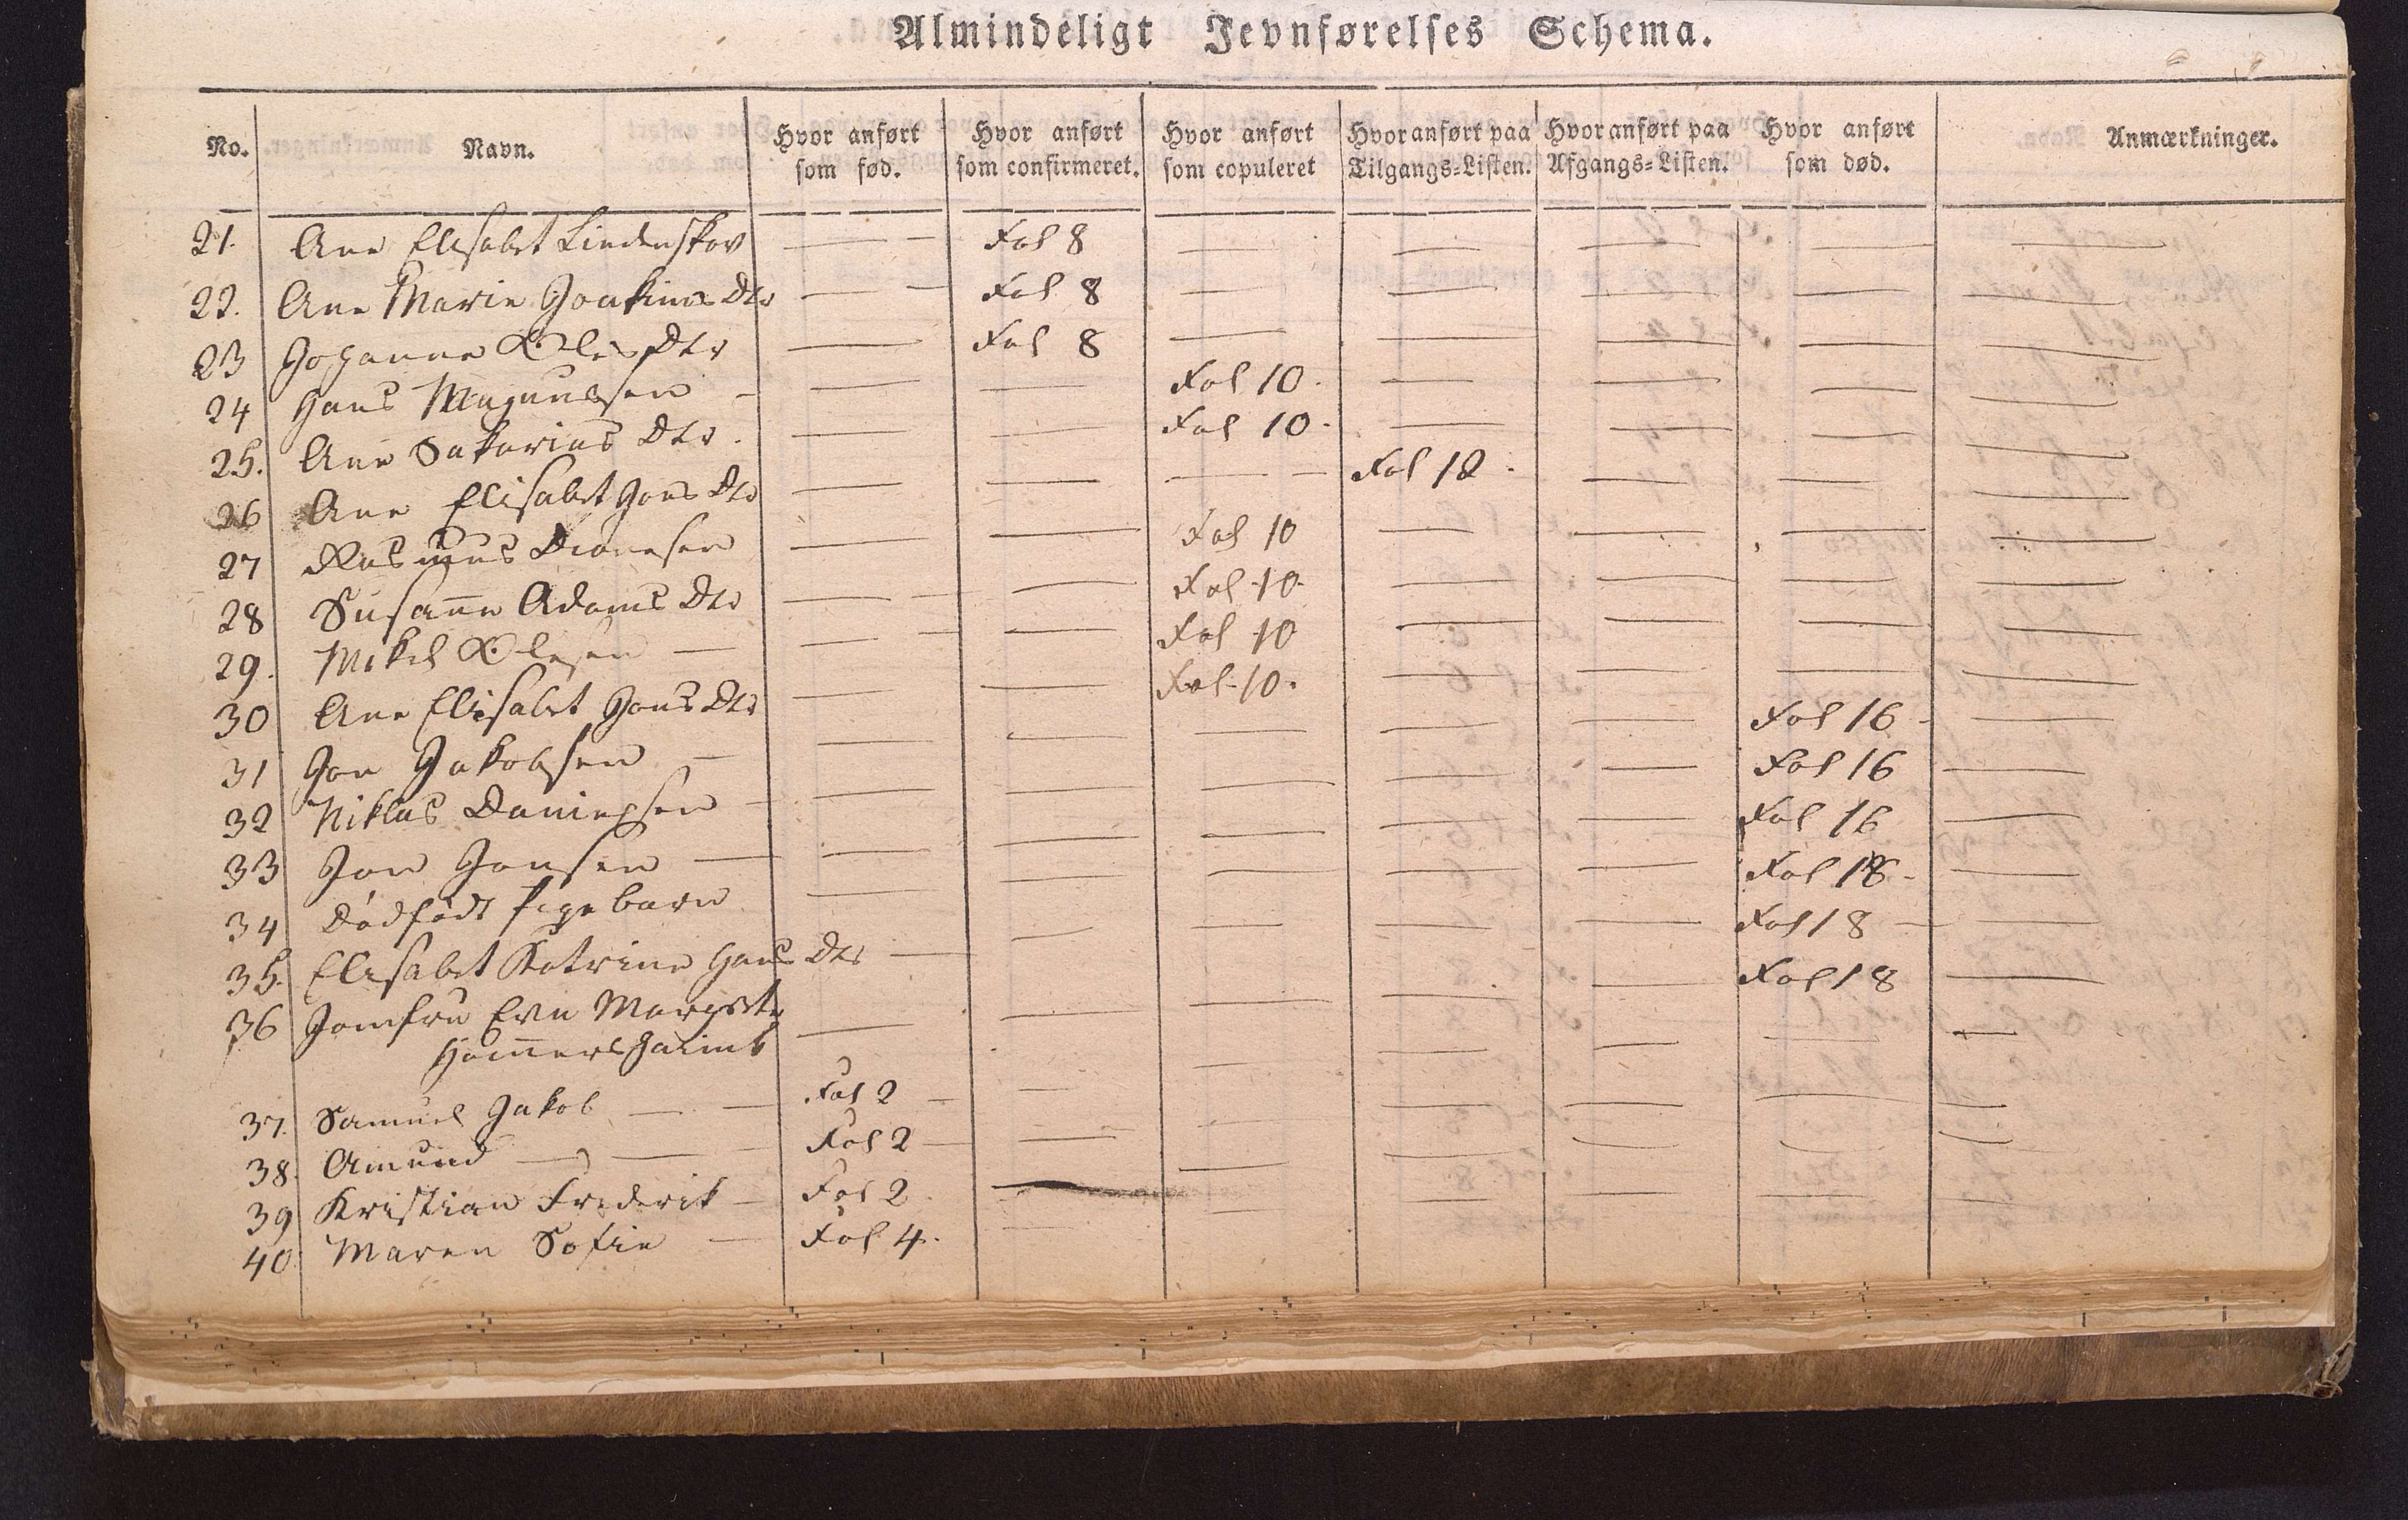 Almindeligt Jevnførelses Schema.
No. Navn. Hvor anført som fød. Hvor anført som confirmeret. Hvor anført som copuleret Hvor anført paa Tilgangs-Listen. Hvor anført paa Afgangs-Listen. Hvor anført som død. Anmærkninger.
21. Ane Elisabet Lindenskov — Fol 8 — — — — —
22. Ane Marie Joakims Dtr — Fol 8 — — — — —
23 Johanne Oles Dtr — Fol 8 — — — — —
24 Hans Magnussen — — — Fol 10. — — — —
25. Ane Sakarias Dtr. — — Fol 10. — — — —
26 Ane Elisabet Jons Dtr — — — Fol 12. — — —
27 Rasmus Dionesen — — Fol 10 — — — —
28 Susanne Adams Dtr — — Fol 10. — — — —
29. Mikel Olesen — — — Fol 10 — — — —
30 Ane Elisabet Jons Dtr — — Fol 10. — — — —
31 Jon Jakobsen — — — — — — Fol 16 — —
32 Niklas Danielsen — — — — — — Fol 16 —
33 Jon Jonsen — — — — — — Fol 16 —
34 Dödfödt Pigebarn — — — — — Fol 18. —
35. Elisabet Katrine Hans Dtr — — — — — Fol 18 — —
36 Jomfru Eva Margrete — — — — — Fol 18 —
Hammershaimb
37. Samuel Jakob — — Fol 2 — — — — — — —
38. Amund — — — Fol 2 — — — — — — —
39 Kristian Frederik — Fol 2. — — — — — —
40. Maren Sofie — Fol 4. — — — — — —